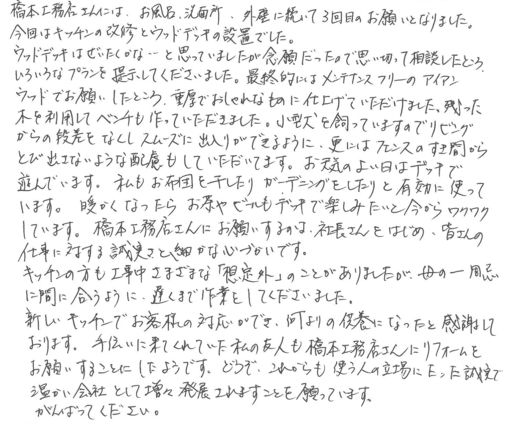 橋本工務店さんには、お風呂、洗面所、外壁に続いて3回目のお願いとなりました。
今回はキッチンの改修とウッドデッキの設置でした。
ウッドデッキはぜいたくかな…と思っていましたが念願だったので思い切って相談したところ、
いろいろなプランを提示してくださいました。最終的にはメンテナンスフリーのアイアン
ウッドでお願いしたところ、重厚でおしゃれなものに仕上げていただけました。残った
木を利用してベンチも作っていただきました。小型犬を飼っていますのでリビング
からの段差をなくしスムーズに出入りができるように、更にはフェンスのすき間から
とび出さないような配慮もしていただいてます。お天気のよい日はデッキで
遊んでいます。私もお布団を干したりガーデニングをしたりと有効に使って
います。暖かくなったらお茶やビールもデッキで楽しみたいと今からワクワク
しています。橋本工務店さんにお願いするのは、社長さんをはじめ、皆さんの
仕事に対する誠実さと、細かな心づかいです。
キッチンの方も工事中さまざまな「想定外」のことがありましたが、母の一周忌
に間に合うように、遅くまで作業をしてくださいました。
新しいキッチンでお客様の対応ができ、何よりの供養になったと感謝して
おります。手伝いに来てくれていた私の友人も橋本工務店さんにリフォームを
お願いすることにしたようです。どうぞ、これからも使う人の立場にたった誠実で
温かい会社として増々発展されますことを願っています。
がんばってください。